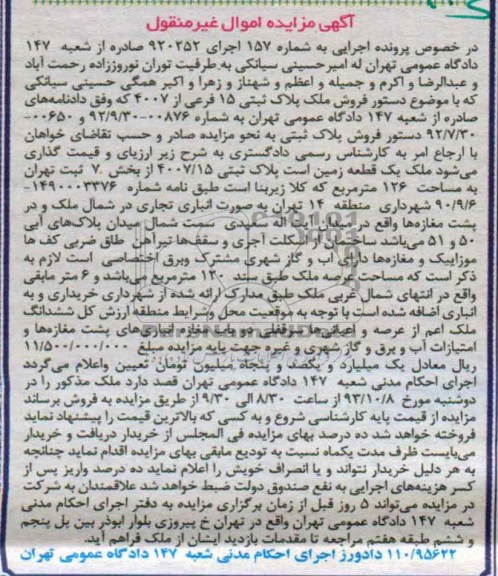 آگهی مزایده اموال غیرمنقول
در خصوص پرونده اجرایی به شماره ۱۵۷ اجرای ۹۲۰۲۵۲ صادره از شعبه ۱۴۷
دادگاه عمومی تهران له امیرحسینی سیانکی به طرفیت توران نوروززاده رحمت آباد
و عبدالرضا و اکرم و جمیله و اعظم و شهناز و زهرا و اکبر همگی حسینی سیانکی
که با موضوع دستور فروش ملک پلاک ثبتی ۱۵ فرعی از ۴۰۰۷ که وفق دادنامه‌های
صادره از شعبه ۱۴۷ دادگاه عمومی تهران به شماره ۰۰۸۷۶-۹۲/۹/۳۰ و ۰۰۶۵۰-
۹۲/۷/۳۰ دستور فروش پلاک ثبتی به نحو مزایده صادر و حسب تقاضای خواهان
با ارجاع امر به کارشناس رسمی دادگستری به شرح زیر ارزیابی و قیمت گذاری
می‌شود ملک یک قطعه زمین است پلاک ثبتی ۴۰۰۷/۱۵ از بخش ۷ ثبت تهران
به مساحت ۱۲۶ مترمربع که کلا زیربنا است طبق نامه شماره ۱۴۹۰۰۰۳۳۷۶-
۹۰/۹/۶ شهرداری منطقه ۱۴ تهران به صورت انباری تجاری در شمال ملک و در
پشت مغازه‌ها واقع در میدان آیت اله سعیدی سمت شمال میدان پلاک‌های آبی
۵۰ و ۵۱ می‌باشد ساختمان از اسکلت آجری و سقف‌ها تیرآهن طاق ضربی کف ها
موزاییک و مغازه‌ها دارای آب و گاز شهری مشترک وبرق اختصاصی است لازم به
ذکر است که مساحت عرصه ملک طبق سند ۱۲۰ مترمربع می‌باشد و ۶ متر مابقی
واقع در انتهای شمال غربی ملک طبق مدارک ارائه شده از شهرداری خریداری و به
انباری اضافه شده است با توجه به موقعیت محل وشرایط منطقه ارزش کل ششدانگ
ملک اعم از عرصه و اعیانی‌ها سرقفلی دو باب مغازه انباری‌های پشت مغازه‌ها و
امتیازات آب و برق و گاز شهری و غیره جهت پایه مزایده مبلغ ۱۱/۵۰۰/۰۰۰/۰۰۰
ریال معادل یک میلیارد و یکصد و پنجاه میلیون تومان تعیین واعلام می‌گردد
اجرای احکام مدنی شعبه ۱۴۷ دادگاه عمومی تهران قصد دارد ملک مذکور را در
دوشنبه مورخ ۹۳/۱۰/۸ از ساعت ۸/۳۰ الی ۹/۳۰ از طریق مزایده به فروش برساند
مزایده از قیمت پایه کارشناسی شروع و به کسی که بالاترین قیمت را پیشنهاد نماید
فروخته خواهد شد ده درصد بهای مزایده فی المجلس از خریدار دریافت و خریدار
می‌بایست ظرف مدت یکماه نسبت به تودیع مابقی بهای مزایده اقدام نماید چنانچه
به هر دلیل خریدار نتواند و یا انصراف خویش را اعلام نماید ده درصد واریز پس از
کسر هزینه‌های اجرایی به نفع صندوق دولت ضبط خواهد شد علاقمندان به شرکت
در مزایده می‌تواند ۵ روز قبل از زمان برگزاری مزایده به دفتر اجرای احکام مدنی
شعبه ۱۴۷ دادگاه عمومی تهران واقع در تهران خ پیروزی بلوار ابوذر بین پل پنجم
و ششم طبقه هفتم مراجعه تا مقدمات بازدید ایشان از ملک فراهم آید.
۱۱۰/۹۵۶۲۲ دادورز اجرای احکام مدنی شعبه ۱۴۷ دادگاه عمومی تهران